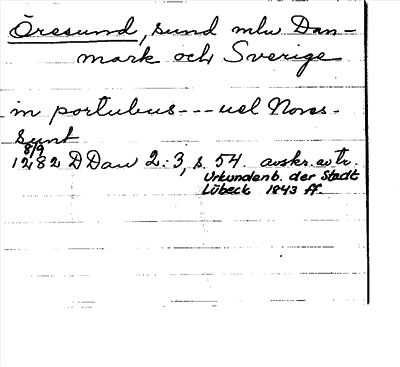 Öresund, sund mlu Dan-
mark och Sverige
in portubus---uel Nores-
sunt
8/9
1282 DDan 2:3, s. 54. avskr. av tr.
Urkundenb. der Stadt
Lübeck 1843 ff.